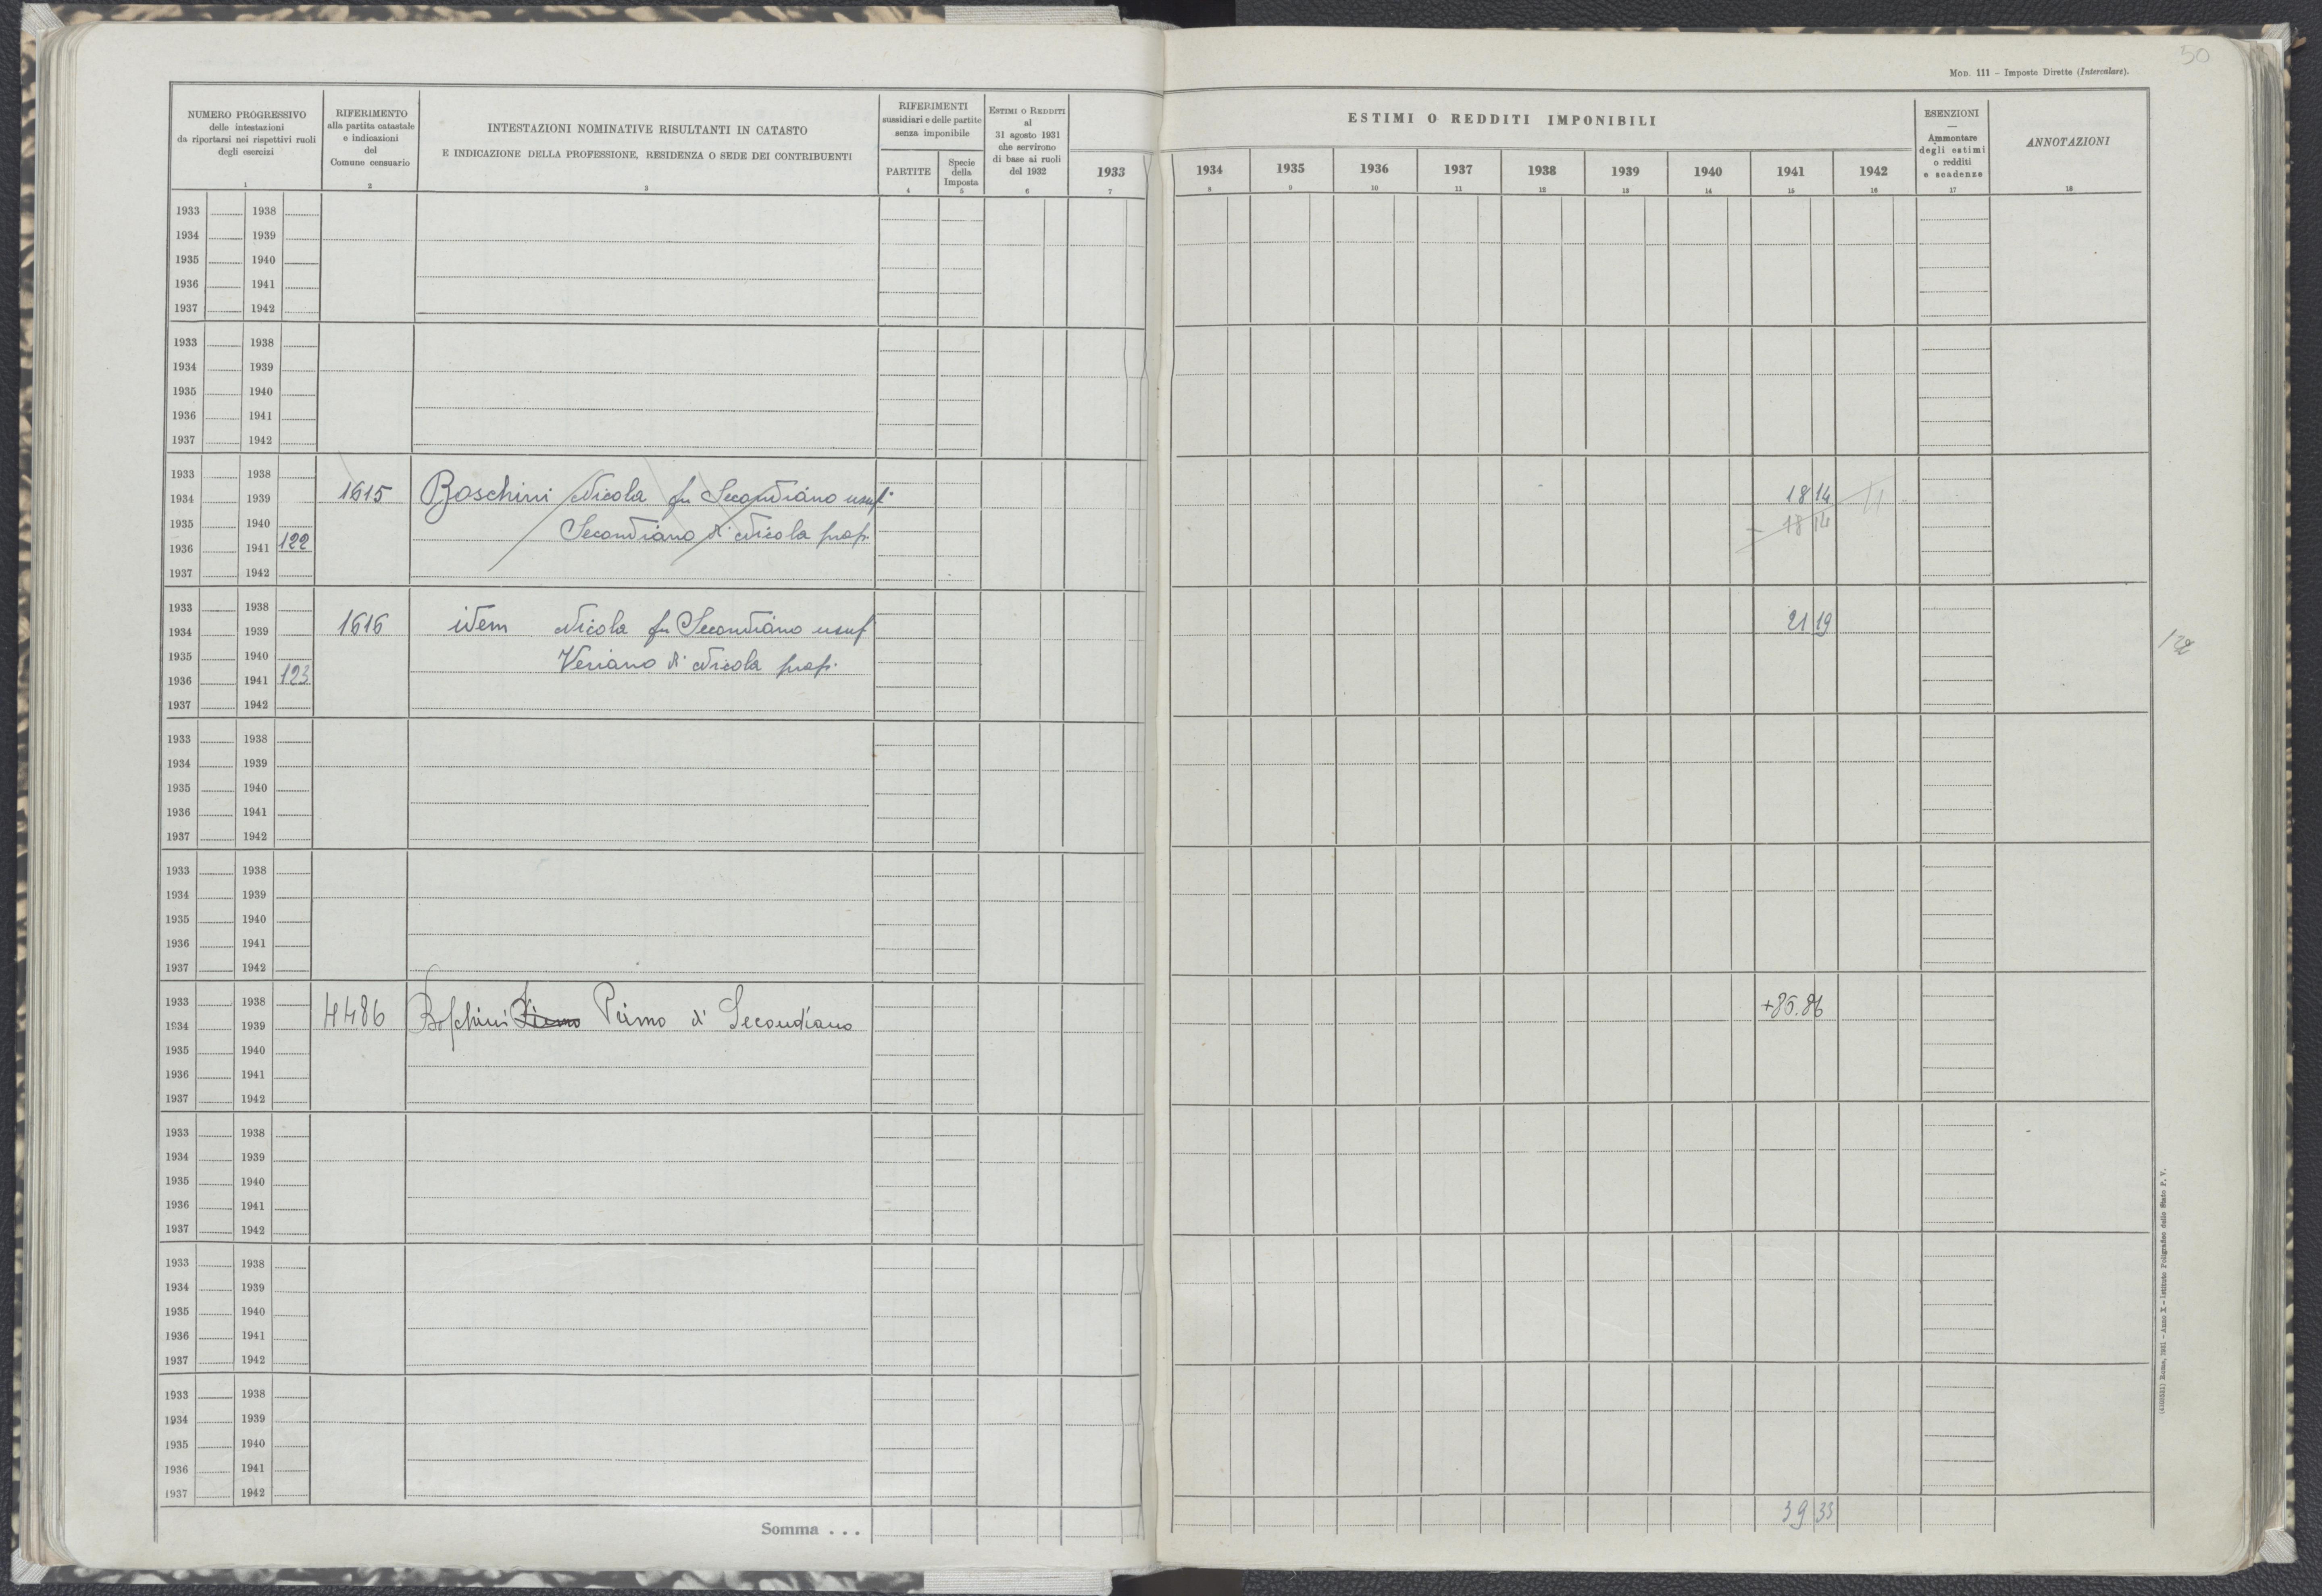 50
MOD. 111 – Imposte Dirette (Intercalare).
NUMERO PROGRESSIVO
delle intestazioni
da riportarsi nei rispettivi ruoli
degli esercizi
1
RIFERIMENTO
alla partita catastale
e indicazioni
del
Comune censuario
2
INTESTAZIONI NOMINATIVE RISULTANTI IN CATASTO
E INDICAZIONE DELLA PROFESSIONE, RESIDENZA O SEDE DEI CONTRIBUENTI
3
RIFERIMENTI
sussidiari e delle partite
senza imponibile
PARTITE
4
Specie
della
Imposta
5
ESTIMI O REDDITI
al
31 agosto 1931
che servirono
di base ai ruoli
del 1932
6
ESTIMI O REDDITI IMPONIBILI
1933 1934 1935 1936 1937 1938 1939 1940 1941 1942
7 8 9 10 11 12 13 14 15 16
ESENZIONI
—
Ammontare
degli estimi
o redditi
e scadenze
17
ANNOTAZIONI
18
1933 1938
1934 1939
1935 1940
1936 1941
1937 1942
1933 1938
1934 1939
1935 1940
1936 1941
1937 1942
1933 1938
1934 1939 1615 Boschini Nicola fu Secondiano usuf. 18 14
1935 1940 Secondiano di Nicola prop. – 18 14
1936 1941 122
1937 1942
1933 1938
1934 1939 1616 idem Nicola fu Secondiano usuf 21 19
1935 1940 Veriano di Nicola prop.
1936 1941 123
1937 1942
1933 1938
1934 1939
1935 1940
1936 1941
1937 1942
1933 1938
1934 1939
1935 1940
1936 1941
1937 1942
1933 1938 +85.86
1934 1939 4486 Boschini Primo di Secondiano
1935 1940
1936 1941
1937 1942
1933 1938
1934 1939
1935 1940
1936 1941
1937 1942
1933 1938
1934 1939
1935 1940
1936 1941
1937 1942
1933 1938
1934 1939
1935 1940
1936 1941
1937 1942
Somma . . . 39 33
Roma, 1931 – Anno X – Istituto Poligrafico dello Stato P. V.